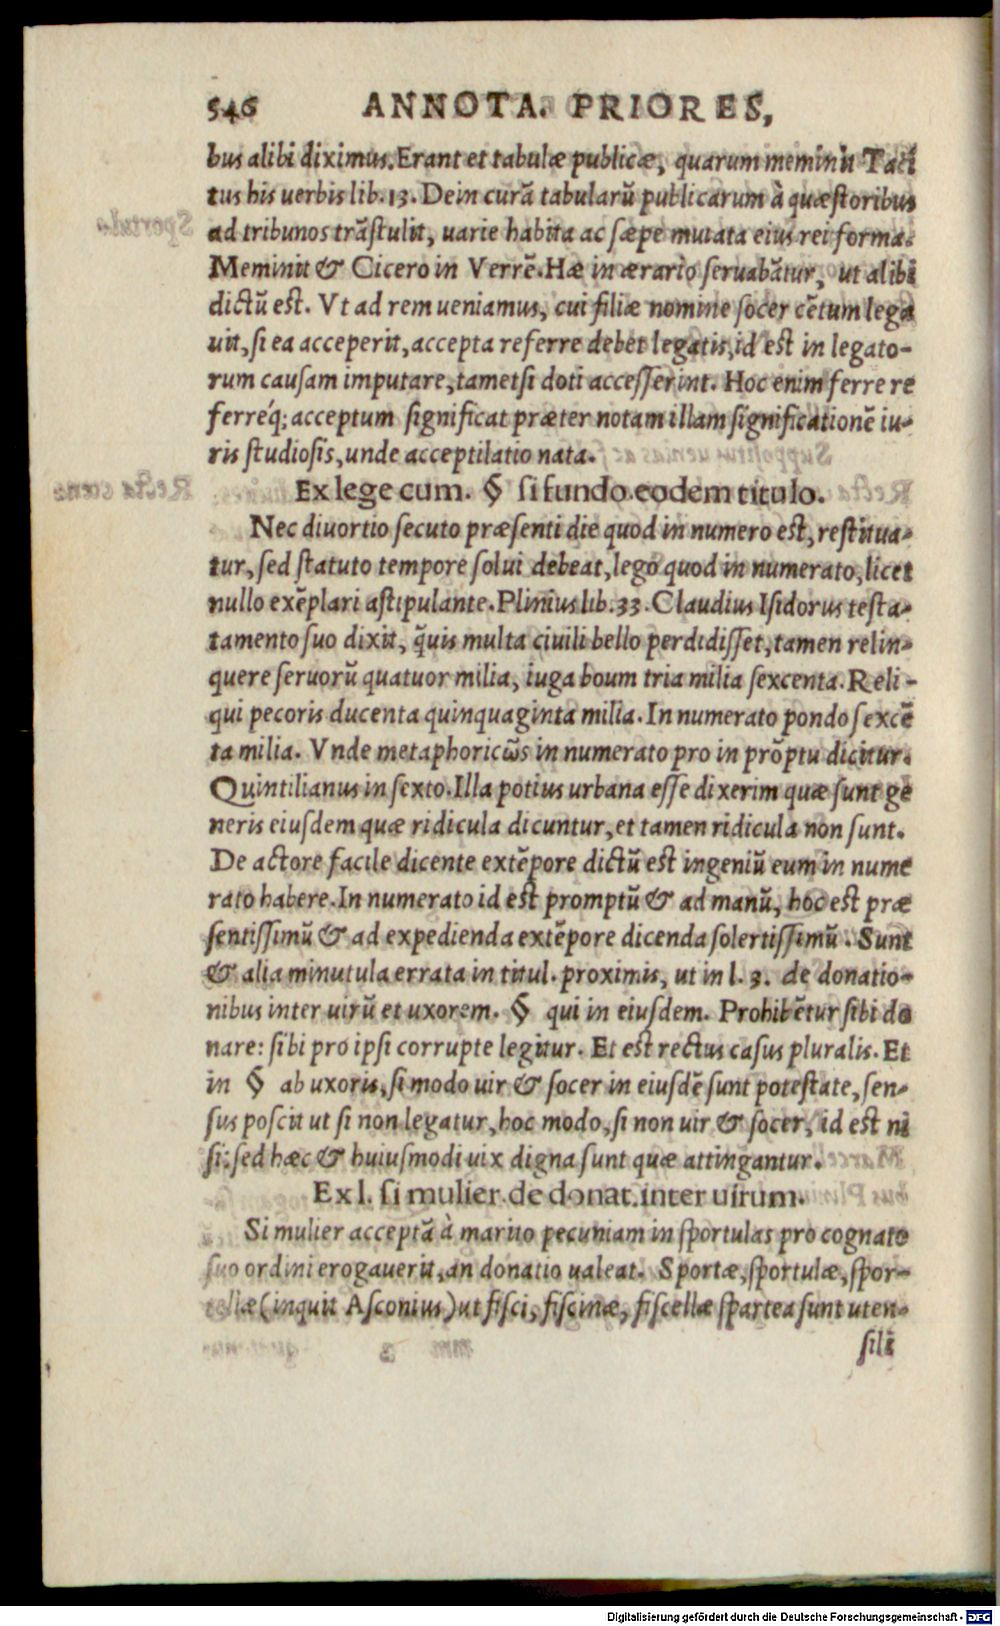 546 ANNOTA. PRIORES,
bus alibi diximus. Erant et tabulæ publicæ, quarum meminit Taci
tus his verbis lib. 13. Dein curã tabularũ publicarum à quæstoribus
ad tribunos trãstulit, varie habita ac sæpe mutata eius rei forma.
Meminit & Cicero in Verrẽ. Hæ in ærario seruabãtur, ut alibi
dictũ est. Vt ad rem veniamus, cui filiæ nomine socer cẽtum lega
uit, si ea acceperit, accepta referre debet legatis, id est in legato-
rum causam imputare, tametsi doti accesserint. Hoc enim ferre re
ferréq; acceptum significat præter notam illam significationẽ iu-
ris studiosis, unde acceptilatio nata.
Ex lege cum. § si fundo. eodem titulo.
Nec diuortio secuto præsenti die quod in numero est, restitua-
tur, sed statuto tempore solui debeat, lego quod in numerato, licet
nullo exẽplari astipulante. Plinius lib. 33. Claudius Isidorus testa-
tamento suo dixit, q̃uis multa ciuili bello perdidisset, tamen relin-
quere seruorũ quatuor milia, iuga boum tria milia sexcenta. Reli-
qui pecoris ducenta quinquaginta milia. In numerato pondo sexcẽ
ta milia. Vnde metaphoricω̃s in numerato pro in prõptu dicitur.
Quintilianus in sexto. Illa potius urbana esse dixerim quæ sunt ge
neris eiusdem quæ ridicula dicuntur, et tamen ridicula non sunt.
De actore facile dicente extẽpore dictũ est ingeniũ eum in nume
rato habere. In numerato id est promptũ & ad manũ, hoc est præ
sentissimũ & ad expedienda extẽpore dicenda solertissimũ. Sunt
& alia minutula errata in titul. proximis, ut in l. 3. de donatio-
nibus inter uirũ et uxorem. § qui in eiusdem. Prohibẽtur sibi do
nare: sibi pro ipsi corrupte legitur. Et est rectus casus pluralis. Et
in § ab uxoris, si modo uir & socer in eiusdẽ sunt potestate, sen-
sus poscit ut si non legatur, hoc modo, si non uir & socer, id est ni
si: sed hæc & huiusmodi uix digna sunt quæ attingantur.
Ex l. si mulier. de donat. inter uirum.
Si mulier acceptã à marito pecuniam in sportulas pro cognato
suo ordini erogauerit, an donatio ualeat. Sportæ, sportulæ, spor-
tellæ (inquit Asconius) ut fisci, fiscinæ, fiscellæ spartea sunt uten-
sili
Digitalisierung gefördert durch die Deutsche Forschungsgemeinschaft - DFG